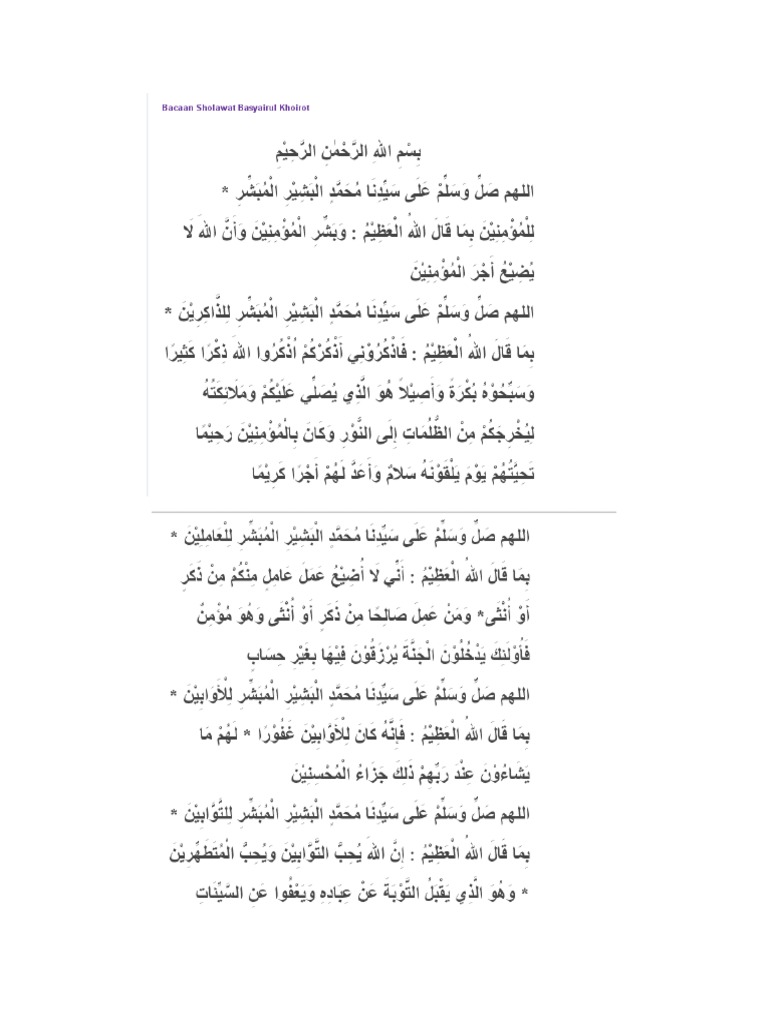 Bacaan Sholawat Basyairul Khoirot
بِسْمِ اللهِ الرَّحْمٰنِ الرَّحِيْمِ
اللهم صَلِّ وَسَلِّمْ عَلَى سَيِّدِنَا مُحَمَّدٍ الْبَشِيْرِ الْمُبَشِّرِ *
لِلْمُؤْمِنِيْنَ بِمَا قَالَ اللهُ الْعَظِيْمُ : وَبَشِّرِ الْمُؤْمِنِيْنَ وَأَنَّ اللهَ لَا
يُضِيْعُ أَجْرَ الْمُؤْمِنِيْنَ
اللهم صَلِّ وَسَلِّمْ عَلَى سَيِّدِنَا مُحَمَّدٍ الْبَشِيْرِ الْمُبَشِّرِ لِلذَّاكِرِيْنَ *
بِمَا قَالَ اللهُ الْعَظِيْمُ : فَاذْكُرُوْنِي أَذْكُرْكُمْ اُذْكُرُوا اللهَ ذِكْرًا كَثِيرًا
وَسَبِّحُوْهُ بُكْرَةً وَأَصِيْلاً هُوَ الَّذِي يُصَلِّي عَلَيْكُمْ وَمَلَائِكَتُهُ
لِيُخْرِجَكُمْ مِنْ الظُّلُمَاتِ إِلَى النُّوْرِ وَكَانَ بِالْمُؤْمِنِيْنَ رَحِيْمًا
تَحِيَّتُهُمْ يَوْمَ يَلْقَوْنَهُ سَلَامٌ وَأَعَدَّ لَهُمْ أَجْرًا كَرِيْمًا
اللهم صَلِّ وَسَلِّمْ عَلَى سَيِّدِنَا مُحَمَّدٍ الْبَشِيْرِ الْمُبَشِّرِ لِلْعَامِلِيْنَ *
بِمَا قَالَ اللهُ الْعَظِيْمُ : أَنِّي لَا أُضِيْعُ عَمَلَ عَامِلٍ مِنْكُمْ مِنْ ذَكَرٍ
أَوْ أُنْثَى* وَمَنْ عَمِلَ صَالِحًا مِنْ ذَكَرٍ أَوْ أُنْثَى وَهُوَ مُؤْمِنٌ
فَأُوْلَئِكَ يَدْخُلُوْنَ الْجَنَّةَ يُرْزَقُوْنَ فِيْهَا بِغَيْرِ حِسَابٍ
اللهم صَلِّ وَسَلِّمْ عَلَى سَيِّدِنَا مُحَمَّدٍ الْبَشِيْرِ الْمُبَشِّرِ لِلْأَوَابِيْنَ *
بِمَا قَالَ اللهُ الْعَظِيْمُ : فَإِنَّهُ كَانَ لِلْأَوَّابِيْنَ غَفُوْرًا * لَهُمْ مَا
يَشَاءُوْنَ عِنْدَ رَبِّهِمْ ذَلِكَ جَزَاءُ الْمُحْسِنِيْنَ
اللهم صَلِّ وَسَلِّمْ عَلَى سَيِّدِنَا مُحَمَّدٍ الْبَشِيْرِ الْمُبَشِّرِ لِلتَّوَّابِيْنَ *
بِمَا قَالَ اللهُ الْعَظِيْمُ : إِنَّ اللهَ يُحِبَّ التَّوَّابِيْنَ وَيُحِبَّ الْمُتَطَهِّرِيْنَ
* وَهُوَ الَّذِي يَقْبَلُ التَّوْبَةَ عَنْ عِبَادِهِ وَيَعْفُوا عَنِ السَّيِّئَاتِ